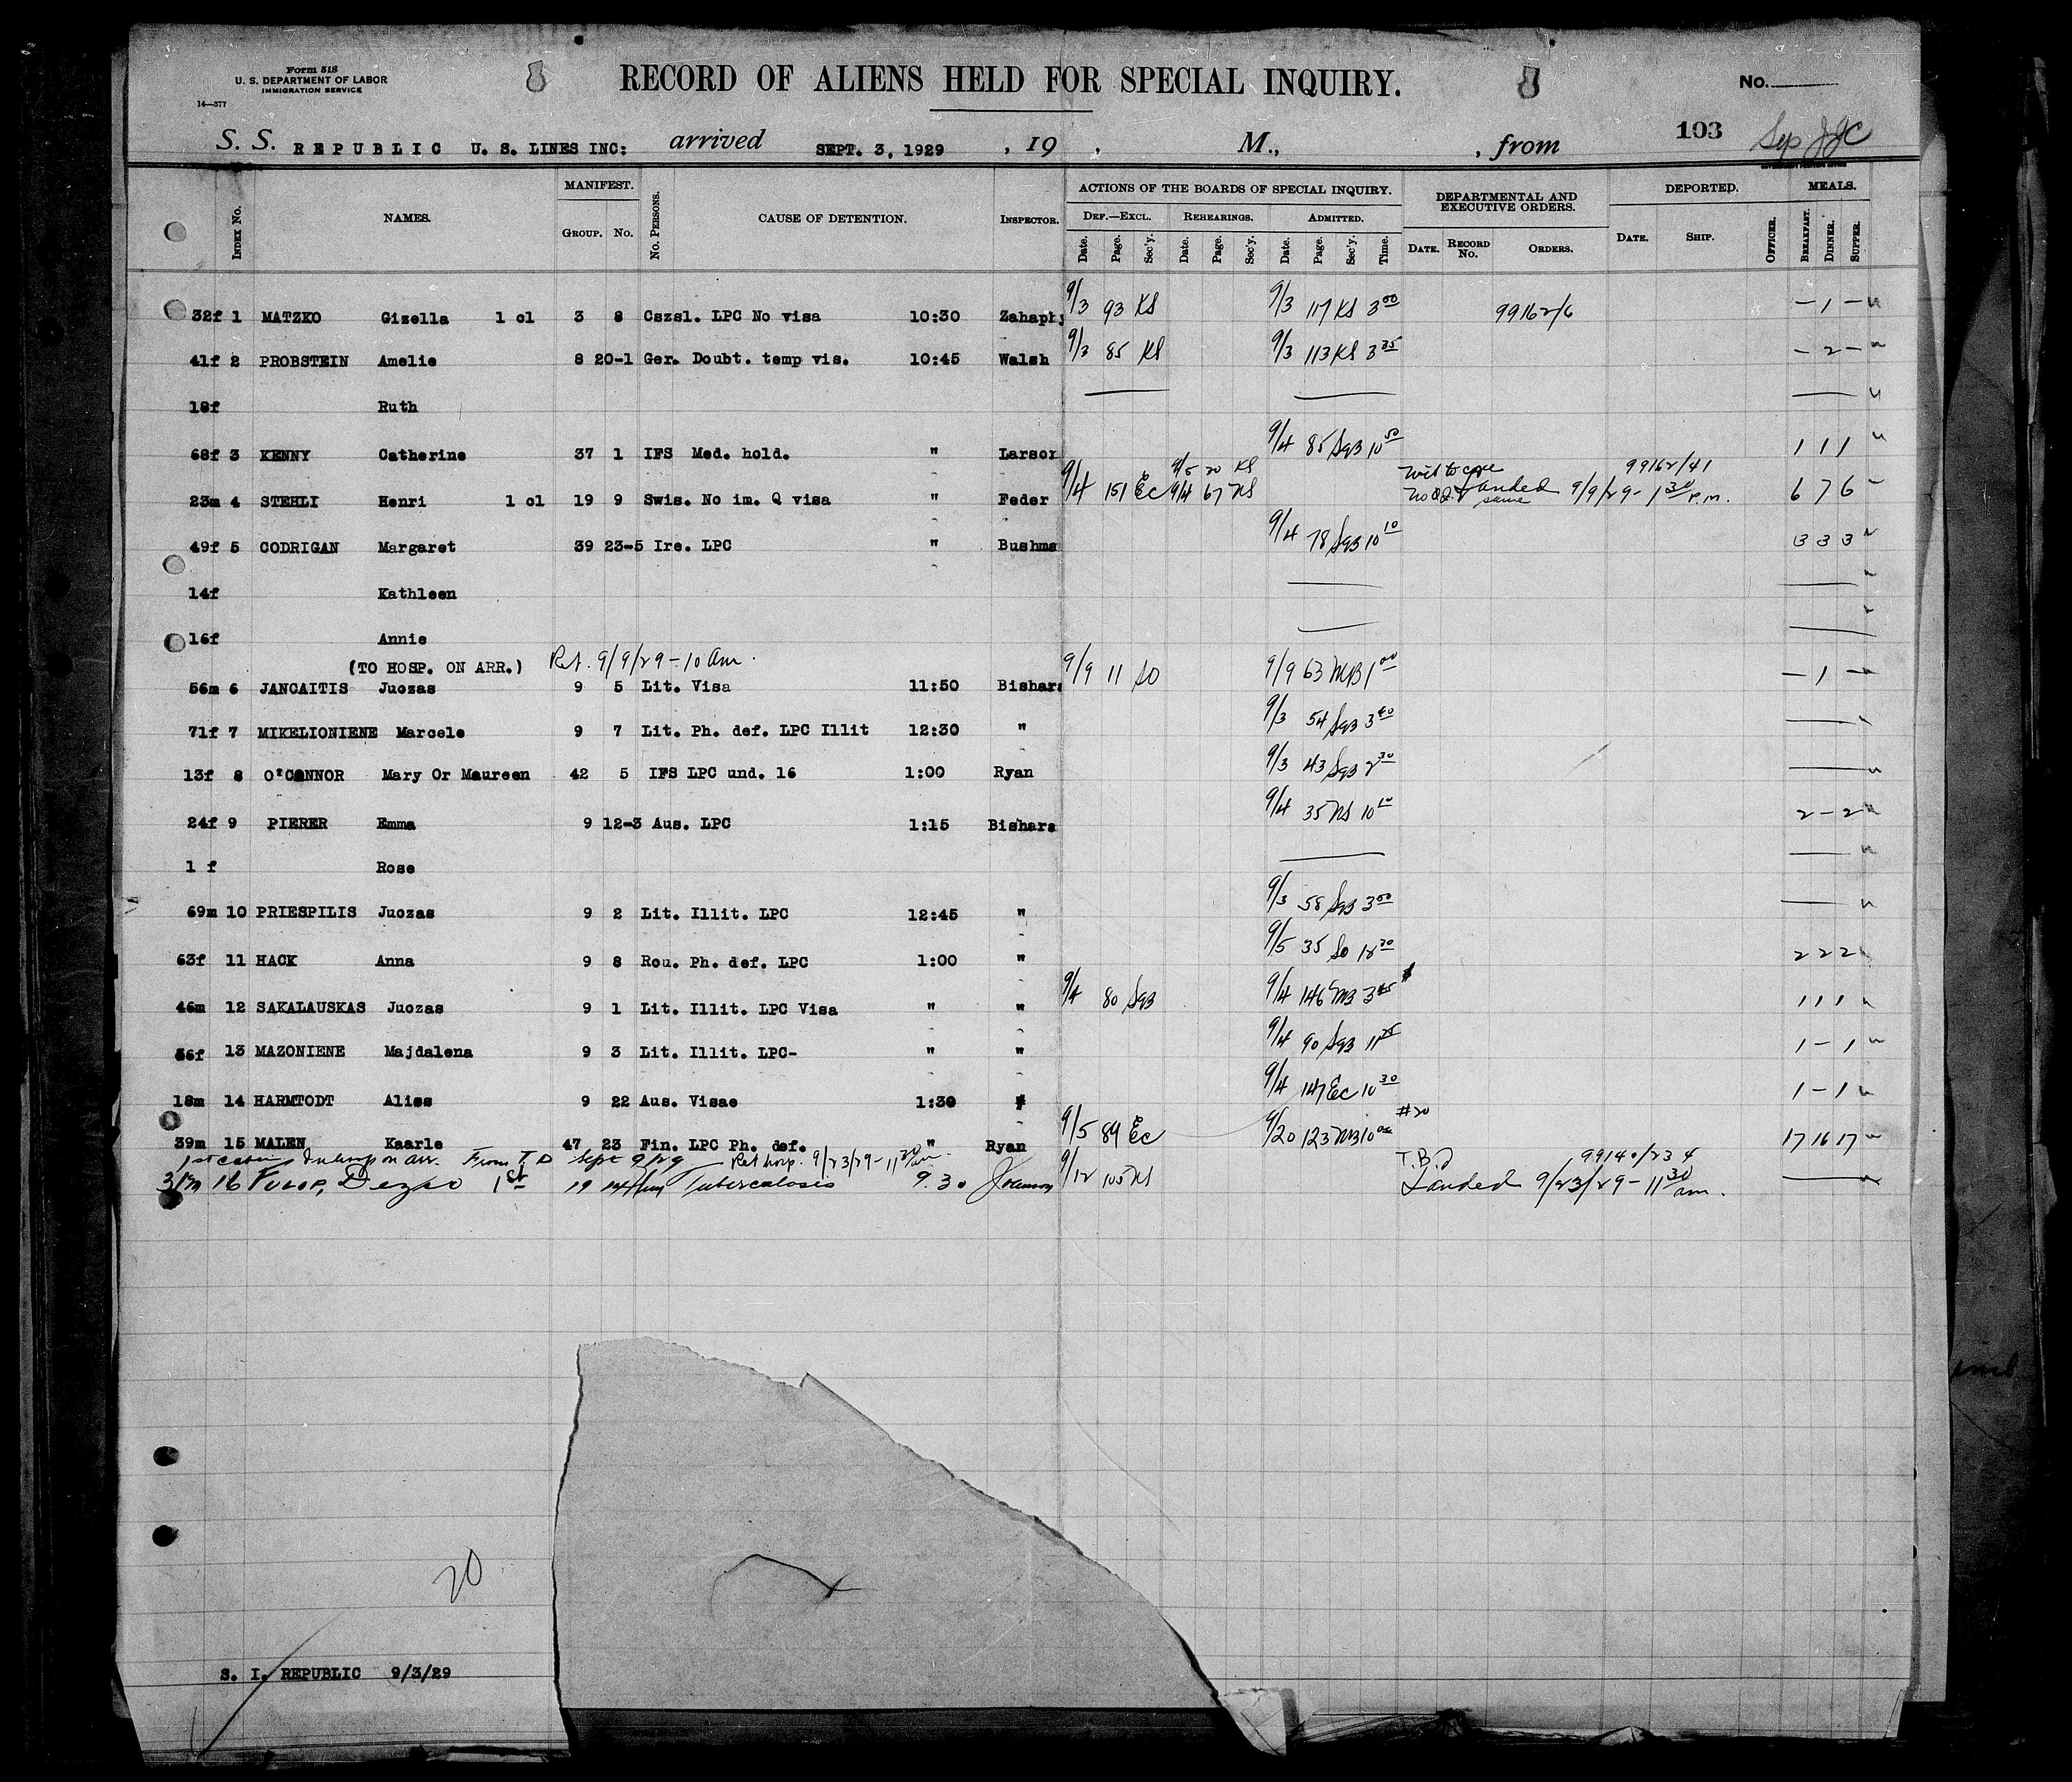 Form 518
U. S. DEPARTMENT OF LABOR
IMMIGRATION SERVICE
14—377
RECORD OF ALIENS HELD FOR SPECIAL INQUIRY.
No.
S. S. REPUBLIC U. S. LINES INC: arrived SEPT. 3, 1929 , 19 , M., , from
103
INDEX NO. NAMES. MANIFEST. GROUP. NO. NO. PERSONS. CAUSE OF DETENTION. INSPECTOR.
ACTIONS OF THE BOARDS OF SPECIAL INQUIRY. DEPARTMENTAL AND EXECUTIVE ORDERS. DEPORTED. MEALS.
DEF.—EXCL. REHEARINGS. ADMITTED.
Date. Page. Sec'y. Date. Page. Sec'y. Date. Page. Sec'y. Time. DATE. RECORD NO. ORDERS. DATE. SHIP. OFFICER. BREAKFAST. DINNER. SUPPER.
32f 1 MATZKO Gizella 1 cl 3 8 Cszsl. LPC No visa 10:30 Zahaphy 9/3 93 KS 9/3 117 KS 3 00 99162/6 — 1 —
41f 2 PROBSTEIN Amelie 8 20-1 Ger. Doubt. temp vis. 10:45 Walsh 9/3 85 KS 9/3 113 KS 3 35 — 2 —
18f Ruth
68f 3 KENNY Catherine 37 1 IFS Med. hold. " Larson 9/4 85 SqB 10 50 1 1 1
9/5 20 KS 99162/41
23m 4 STEHLI Henri 1 cl 19 9 Swis. No im. Q visa " Feder 9/4 151 Ec 9/4 67 NS Landed 9/9/29 - 1 30 P.m. 6 7 6
49f 5 CODRIGAN Margaret 39 23-5 Ire. LPC " Bushma 9/4 78 SqB 10 10 3 3 3
14f Kathleen
16f Annie
(TO HOSP. ON ARR.) Ret. 9/9/29 - 10 am.
56m 6 JANCAITIS Juozas 9 5 Lit. Visa 11:50 Bishara 9/9 11 SO 9/9 63 MB 1 00 — 1 —
71f 7 MIKELIONIENE Marcele 9 7 Lit. Ph. def. LPC Illit 12:30 " 9/3 54 SqB 3 40
13f 8 O'CONNOR Mary Or Maureen 42 5 IFS LPC und. 16 1:00 Ryan 9/3 43 SqB 2 30
24f 9 PIERER Emma 9 12-3 Aus. LPC 1:15 Bishara 9/4 35 NS 10 10 2 — 2
1 f Rose
69m 10 PRIESPILIS Juozas 9 2 Lit. Illit. LPC 12:45 " 9/3 58 SqB 3 50
63f 11 HACK Anna 9 8 Rou. Ph. def. LPC 1:00 " 9/5 35 SO 12 30 2 2 2
46m 12 SAKALAUSKAS Juozas 9 1 Lit. Illit. LPC Visa " " 9/4 80 SqB 9/4 146 MB 3 45 1 1 1
56f 13 MAZONIENE Majdalena 9 3 Lit. Illit. LPC- " " 9/4 90 SqB 11 25 1 — 1
18m 14 HARMTODT Alies 9 22 Aus. Visae 1:30 " 9/4 147 Ec 10 30 1 — 1
39m 15 MALEN Kaarle 47 23 Fin. LPC Ph. def. " Ryan 9/5 89 Ec 9/20 123 MB 10 00 #20 17 16 17
1st cabin In hosp on arr. From T. D Sept 9/29 Ret hosp. 9/23/29 - 11 20 am. T.B.D 99140/234
31m 16 Fulop, Dezso 1st 19 14 Tuberculosis 9.30 Johnson 9/12 105 NS Landed 9/23/29 - 11 30 am.
20
S. I. REPUBLIC 9/3/29